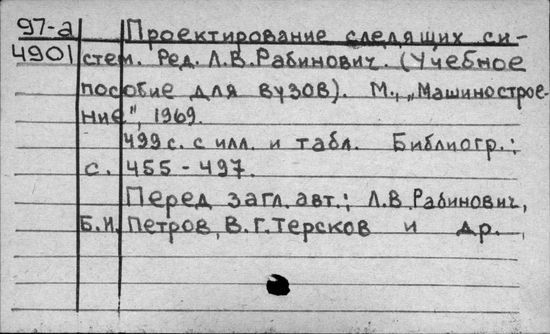 97-а Проектирование следящих си-
4901 стем. Ред. Л.В.Рабинович. (Учебное
пособие для вузов). М., „Машинострое-
ние", 1969.
499 с. с илл. и табл. Библиогр.:
с. 455-497.
Перед загл. авт.: Л.В.Рабинович,
Б.И. Петров, В.Г.Терсков и др.